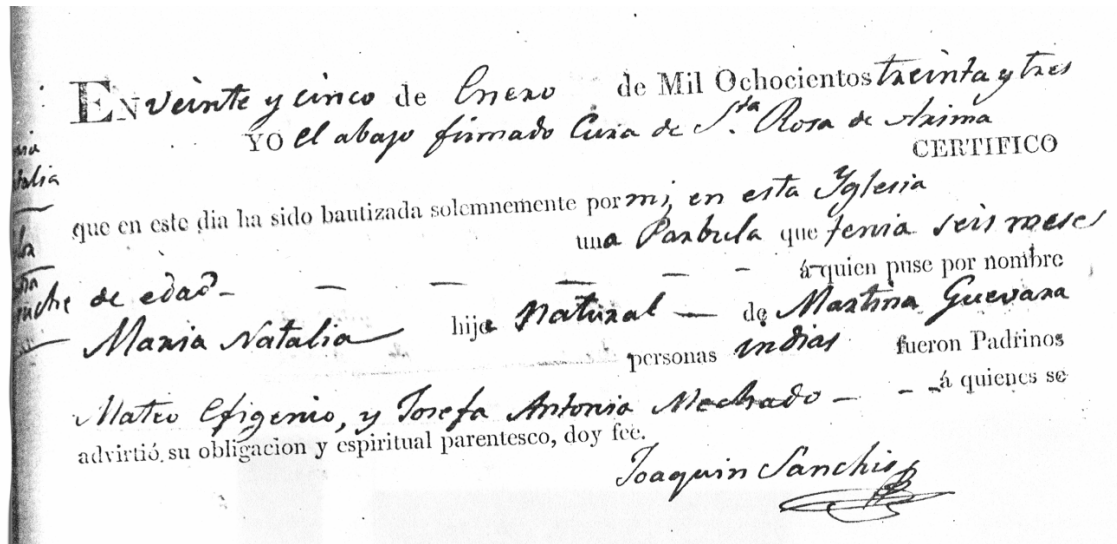 EN veinte y cinco de Enero de Mil Ochocientos treinta y tres
YO el abajo firmado Cura de Sta. Rosa de Arima
CERTIFICO
que en este dia ha sido bautizada solemnemente por mi, en esta Yglesia
una Parbula que tenia seis meses
de edad - — — — - - á quien puse por nombre
Maria Natalia hija Natural — de Martina Guevara
personas indias fueron Padrinos
Mateo Efigenio, y Josefa Antonia Machado — - á quienes se
advirtió su obligacion y espiritual parentesco, doy fee.
Joaquin Sanchis